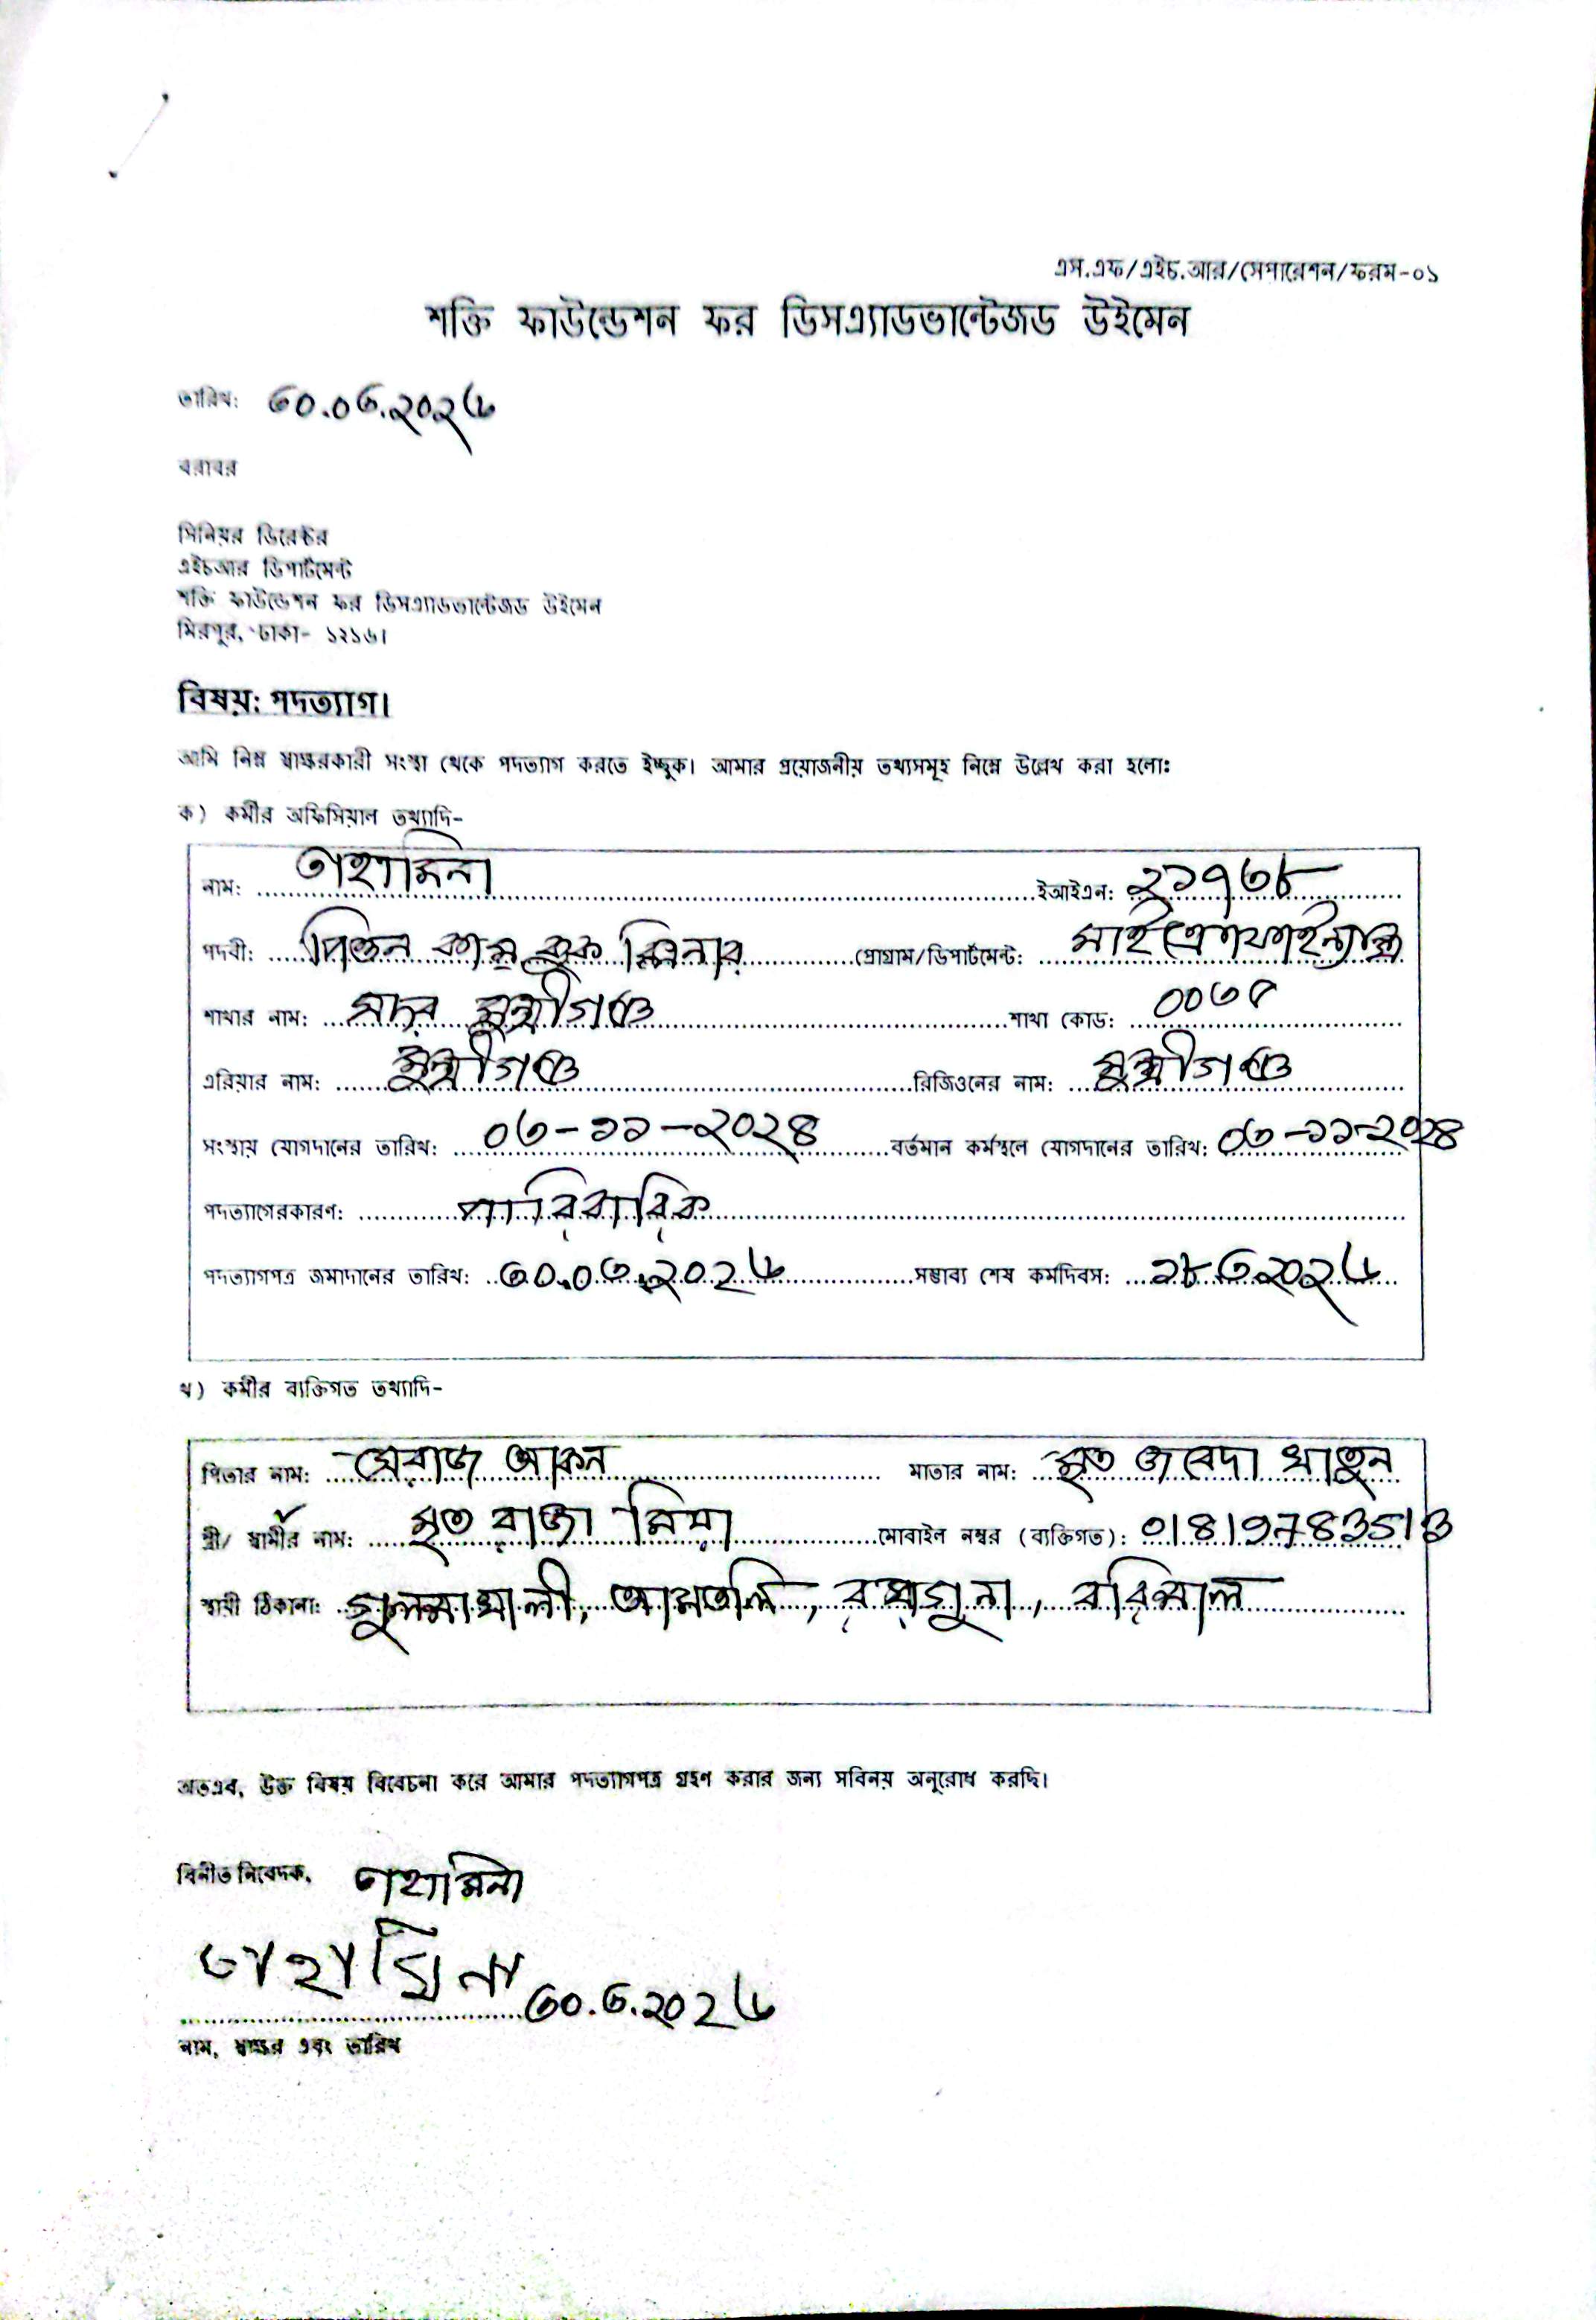 এস.এফ/এইচ.আর/সেপারেশন/ফরম-০১
শক্তি ফাউন্ডেশন ফর ডিসএ্যাডভান্টেজড উইমেন
তারিখ: ৩০.০৩.২০২৬
বরাবর
সিনিয়র ডিরেক্টর
এইচআর ডিপার্টমেন্ট
শক্তি ফাউন্ডেশন ফর ডিসএ্যাডভান্টেজড উইমেন
মিরপুর, ঢাকা- ১২১৬।
বিষয়: পদত্যাগ।
আমি নিম্ন স্বাক্ষরকারী সংস্থা থেকে পদত্যাগ করতে ইচ্ছুক। আমার প্রয়োজনীয় তথ্যসমূহ নিম্নে উল্লেখ করা হলো:
ক) কর্মীর অফিসিয়াল তথ্যাদি-
নাম: তাহামিনা ইআইএন: ২১৭৩৮
পদবী: পিওন কাম কুক ক্লিনার প্রোগ্রাম/ডিপার্টমেন্ট: মাইক্রোফাইন্যান্স
শাখার নাম: সদর মুন্সীগঞ্জ শাখা কোড: ০০৩৮
এরিয়ার নাম: মুন্সীগঞ্জ রিজিওনের নাম: মুন্সীগঞ্জ
সংস্থায় যোগদানের তারিখ: ০৩-১১-২০২৪ বর্তমান কর্মস্থলে যোগদানের তারিখ: ০৩-১১-২০২৪
পদত্যাগেরকারণ: পারিবারিক
পদত্যাগপত্র জমাদানের তারিখ: ৩০.০৩.২০২৬ সম্ভাব্য শেষ কর্মদিবস: ২৮ ৩.২০২৬
খ) কর্মীর ব্যক্তিগত তথ্যাদি-
পিতার নাম: মেরাজ আকন মাতার নাম: মৃত জবেদা খাতুন
স্ত্রী/ স্বামীর নাম: মৃত রাজা মিয়া মোবাইল নম্বর (ব্যক্তিগত): 01819783513
স্থায়ী ঠিকানা: গুলসাখালী, আমতলি, বরগুনা, বরিশাল
অতএব, উক্ত বিষয় বিবেচনা করে আমার পদত্যাগপত্র গ্রহণ করার জন্য সবিনয় অনুরোধ করছি।
বিনীত নিবেদক, তাহামিনা
তাহামিনা ৩০.৩.২০২৬
নাম, স্বাক্ষর এবং তারিখ